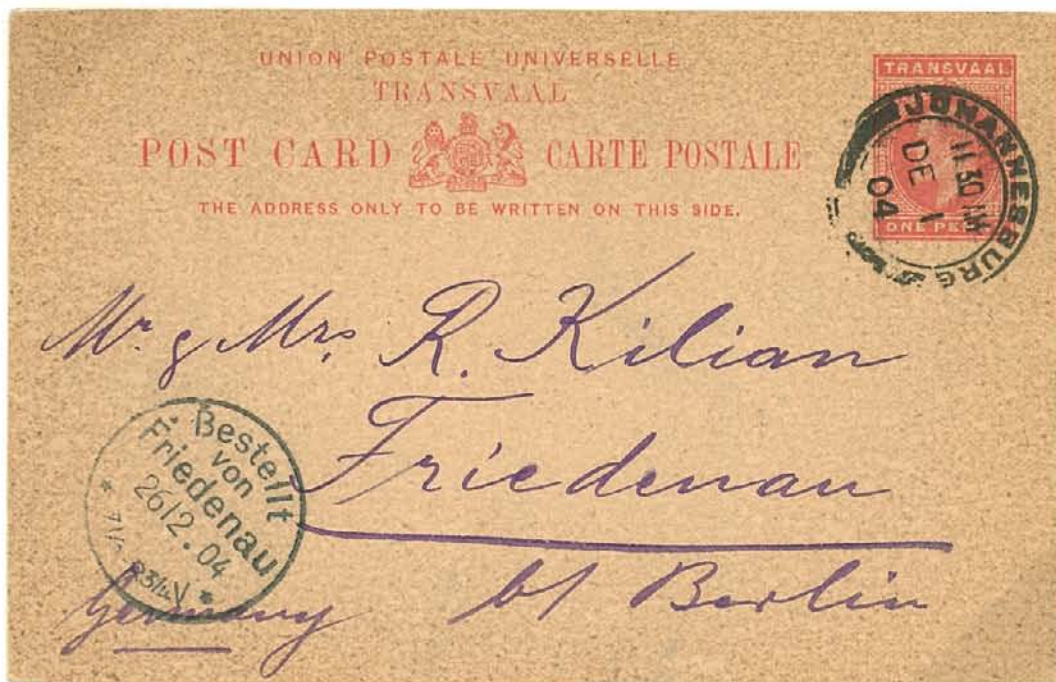 UNION POSTALE UNIVERSELLE
TRANSVAAL
POST CARD CARTE POSTALE
THE ADDRESS ONLY TO BE WRITTEN ON THIS SIDE.
TRANSVAAL
ONE PEN
JOHANNESBURG
11.30 AM
DE 1
04
Mr. & Mrs. R. Kilian
Friedenau
b/ Berlin
Germany
Bestellt
von
Friedenau
26/2.04